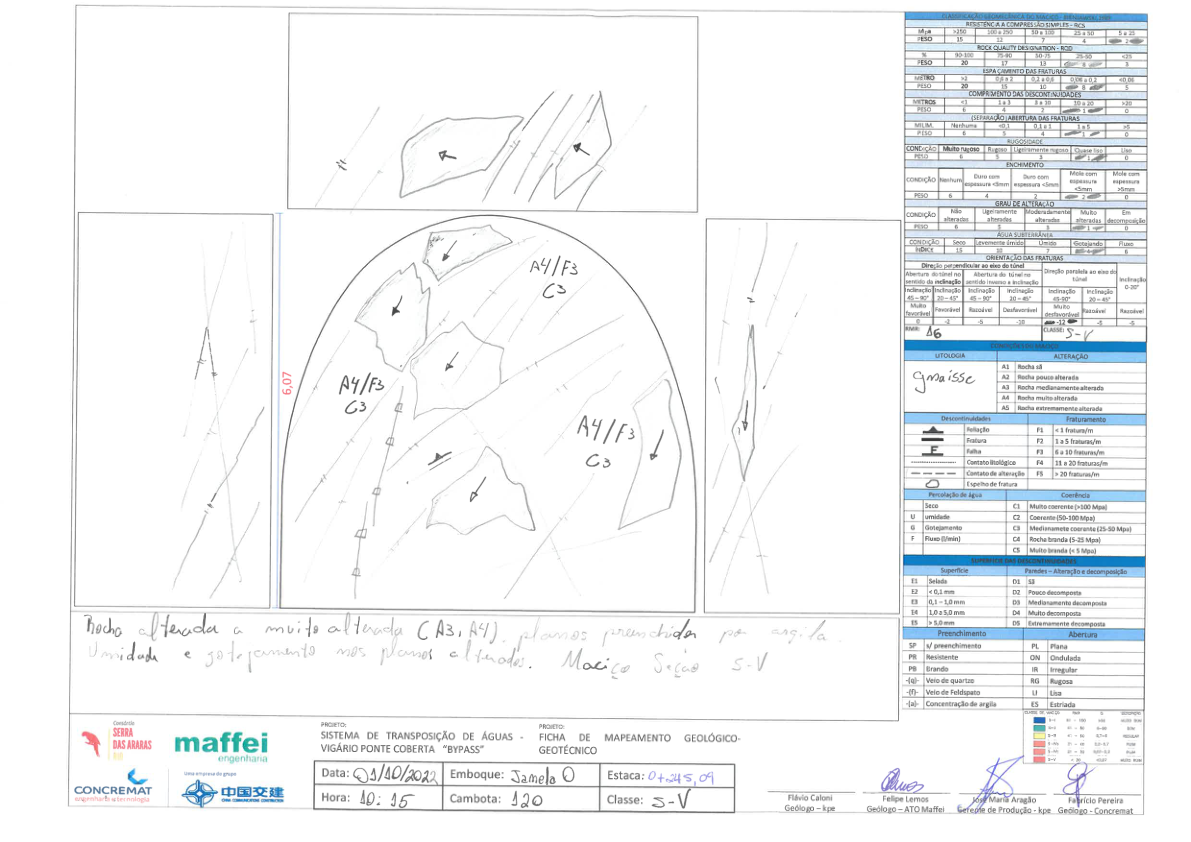 CLASSIFICAÇÃO GEOMECÂNICA DO MACIÇO - BIENIAWSKI, 1989
RESISTENCIA A COMPRESSÃO SIMPLES - RCS
Mpa >250 100 a 250 50 a 100 25 a 50 5 a 25
PESO 15 12 7 4 2
ROCK QUALITY DESIGNATION - RQD
% 90-100 75-90 50-75 25-50 <25
PESO 20 17 13 8 3
ESPAÇAMENTO DAS FRATURAS
METRO >2 0,6 a 2 0,2 a 0,6 0,06 a 0,2 <0,06
PESO 20 15 10 8 5
COMPRIMENTO DAS DESCONTINUIDADES
METROS <1 1 a 3 3 a 10 10 a 20 >20
PESO 6 4 2 1 0
(SEPARAÇÃO) ABERTURA DAS FRATURAS
MILIM. Nenhuma <0,1 0,1 a 1 1 a 5 >5
PESO 6 5 4 1 0
RUGOSIDADE
CONDIÇÃO Muito rugoso Rugoso Ligeiramente rugoso Quase liso Liso
PESO 6 5 3 1 0
ENCHIMENTO
CONDIÇÃO Nenhum Duro com espessura <5mm Duro com espessura <5mm Mole com espessura <5mm Mole com espessura >5mm
PESO 6 4 2 2 0
GRAU DE ALTERAÇÃO
CONDIÇÃO Não alteradas Ligeiramente alteradas Moderadamente alteradas Muito alteradas Em decomposição
PESO 6 5 3 1 0
AGUA SUBTERRÂNEA
CONDIÇÃO Seco Levemente úmido Úmido Gotejando Fluxo
ÍNDICE 15 10 7 4
ORIENTAÇÃO DAS FRATURAS
Direção perpendicular ao eixo do túnel
Abertura do túnel no sentido da inclinação
Abertura do túnel no sentido inverso a inclinação
Direção paralela ao eixo do túnel
Inclinação 0-20°
Inclinação 45 – 90° Inclinação 20 – 45° Inclinação 45 – 90° Inclinação 20 – 45° Inclinação 45-90° Inclinação 20 – 45°
Muito favorável Favorável Razoável Desfavorável Muito desfavorável Razoável Razoável
0 -2 -5 -10 -12 -5 -5
RMR: 16 CLASSE: S-V
LITOLOGIA ALTERAÇÃO
gnaisse
A1 Rocha sã
A2 Rocha pouco alterada
A3 Rocha medianamente alterada
A4 Rocha muito alterada
A5 Rocha extremamente alterada
Descontinuidades Fraturamento
Foliação F1 < 1 fratura/m
Fratura F2 1 a 5 fraturas/m
F Falha F3 6 a 10 fraturas/m
Contato litológico F4 11 a 20 fraturas/m
Contato de alteração F5 > 20 fraturas/m
Espelho de fratura
Percolação de água Coerência
Seco C1 Muito coerente (>100 Mpa)
U umidade C2 Coerente (50-100 Mpa)
G Gotejamento C3 Medianamete coerente (25-50 Mpa)
F Fluxo (l/min) C4 Rocha branda (5-25 Mpa)
C5 Muito branda (< 5 Mpa)
SUPERFÍCIE DAS DESCONTINUIDADES
Superfície Paredes – Alteração e decomposição
E1 Selada D1 Sã
E2 < 0,1 mm D2 Pouco decomposta
E3 0,1 – 1,0 mm D3 Medianamente decomposta
E4 1,0 a 5,0 mm D4 Muito decomposta
E5 > 5,0 mm D5 Extremamente decomposta
Preenchimento Abertura
SP s/ preenchimento PL Plana
PR Resistente ON Ondulada
PB Brando IR Irregular
-(q)- Veio de quartzo RG Rugosa
-(f)- Veio de Feldspato LI Lisa
-(a)- Concentração de argila ES Estriada
A4/F3
C3
A4/F3
C3
A4/F3
C3
6,07
Rocha alterada a muito alterada (A3, A4), planos preenchidos por argila.
Umidade e gotejamento nos planos alterados. Maciço Seção S-V
Consórcio
SERRA
DAS ARARAS
maffei
engenharia
CONCREMAT
engenharia e tecnologia
Uma empresa do grupo
中国交建
CHINA COMMUNICATIONS CONSTRUCTION
PROJETO:
SISTEMA DE TRANSPOSIÇÃO DE ÁGUAS -
VIGÁRIO PONTE COBERTA "BYPASS"
PROJETO:
FICHA DE MAPEAMENTO GEOLÓGICO-
GEOTÉCNICO
Data: 01/10/2022 Emboque: Janela O Estaca: 0+245,09
Hora: 10:15 Cambota: 120 Classe: S-V
Flávio Caloni
Geólogo – kpe
Felipe Lemos
Geólogo – ATO Maffei
José Maria Aragão
Gerente de Produção - kpe
Fabrício Pereira
Geólogo - Concremat